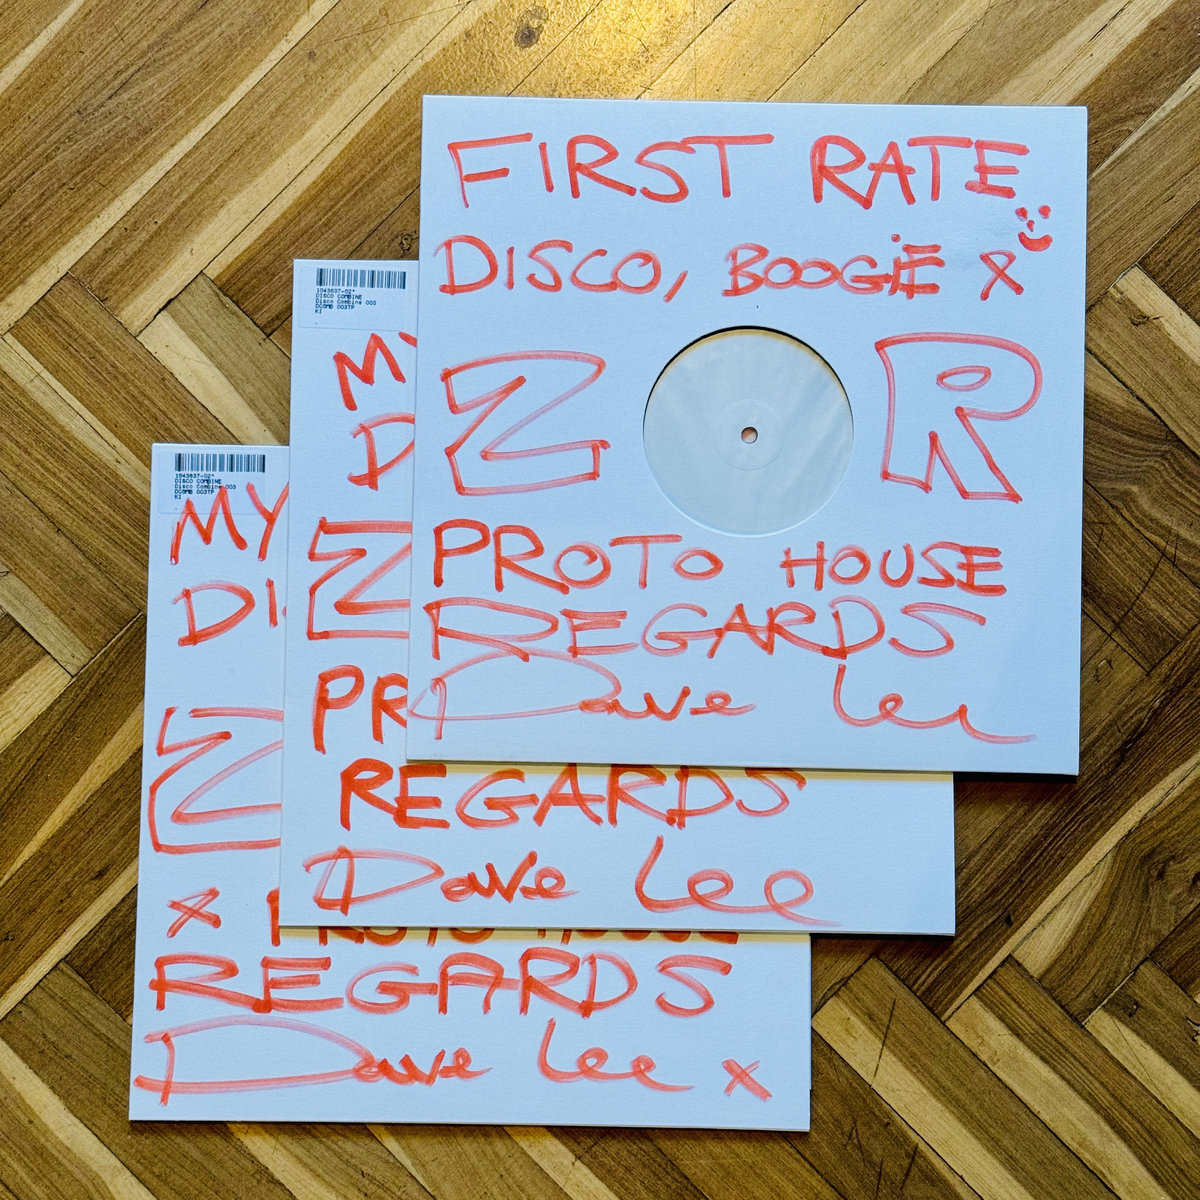 FIRST RATE
DISCO, BOOGIE &
Z R
PROTO HOUSE
REGARDS
Dave Lee
1043637-02*
DISCO COMBINE
Disco Combine 003
DCOMB 003TP
KI
MY
D
Z
PR
REGARDS
Dave Lee
1043637-02*
DISCO COMBINE
Disco Combine 003
DCOMB 003TP
KI
MY
DI
Z
& PROTO HOUSE
REGARDS
Dave Lee x